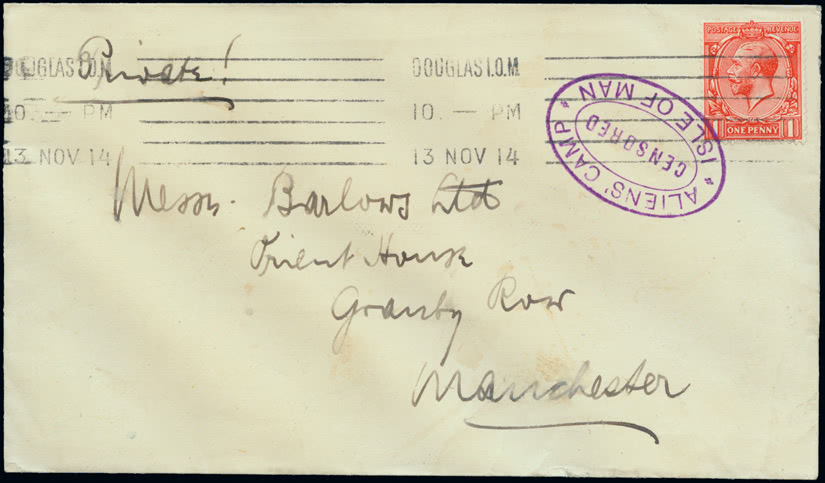 Private!
DOUGLAS I.O.M
10. — PM
13 NOV 14
DOUGLAS I.O.M
10. — PM
13 NOV 14
ALIENS' CAMP
ISLE OF MAN
CENSORED
POSTAGE REVENUE
1 ONE PENNY 1
Messrs. Barlows Ltd
Orient House
Granby Row
Manchester